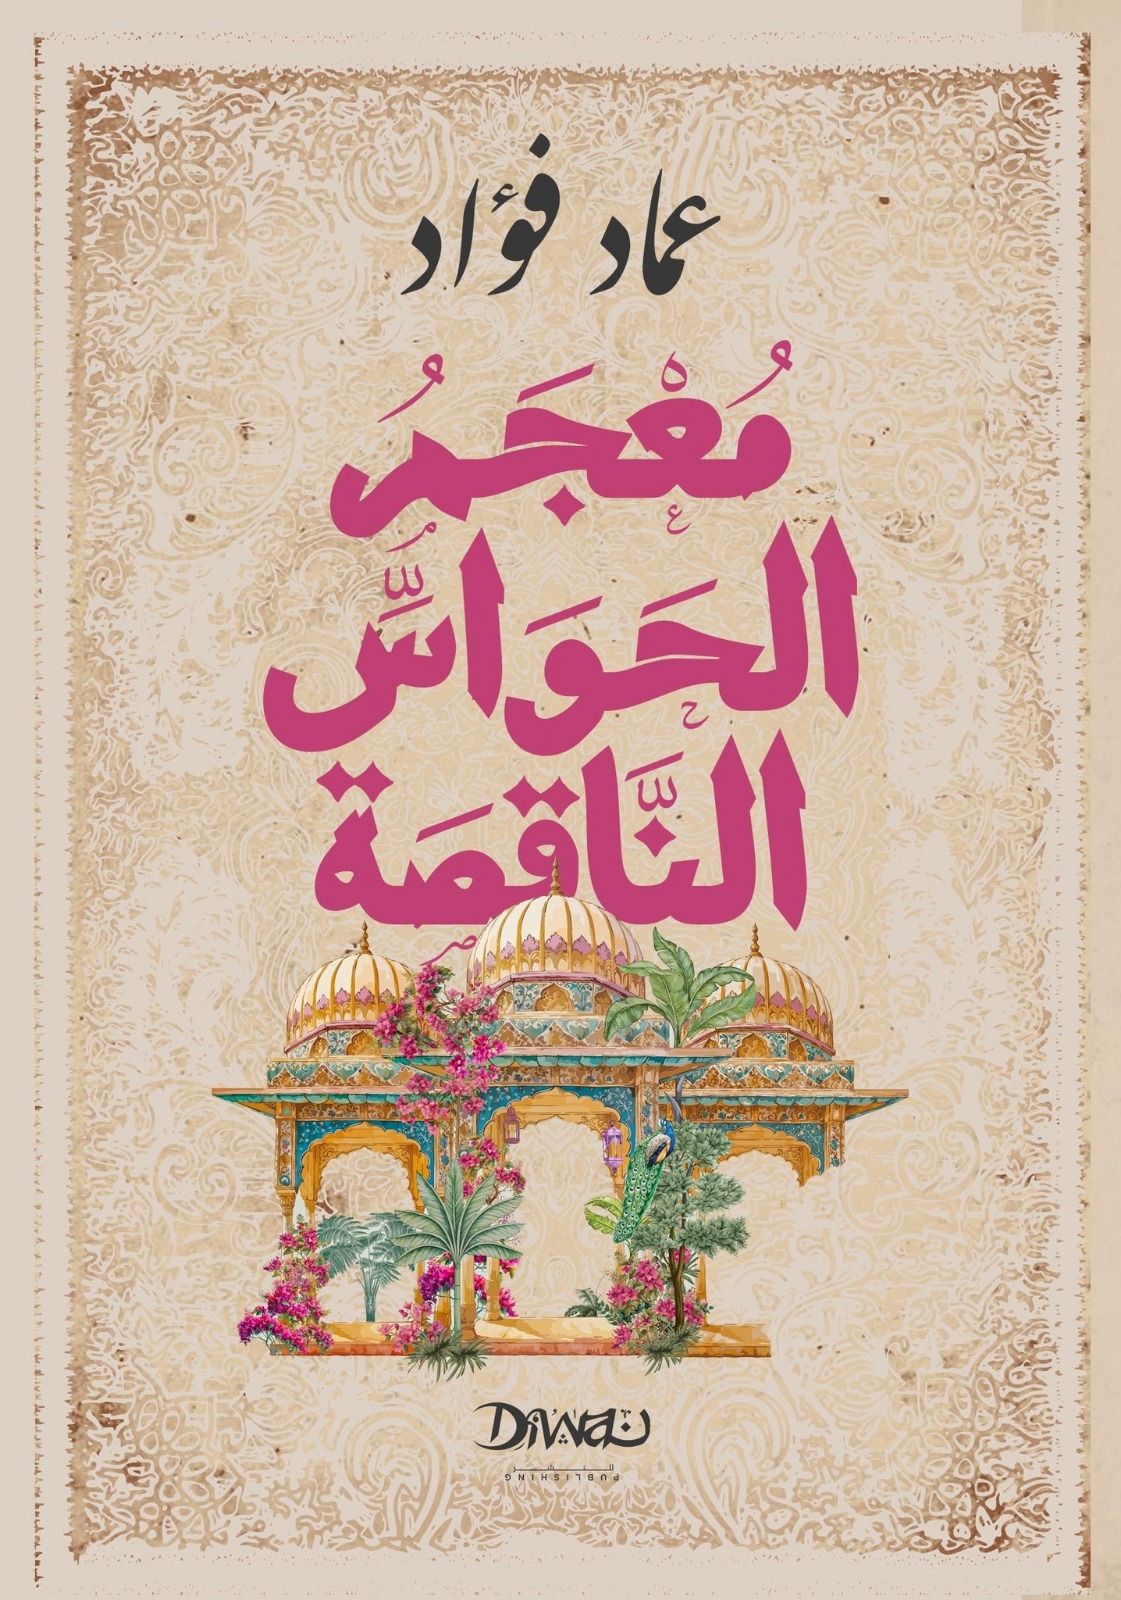 عماد فؤاد
مُعْجَمُ
الحَوَاسِّ
النَّاقِصَة
DiWaN
للنشر
PUBLISHING